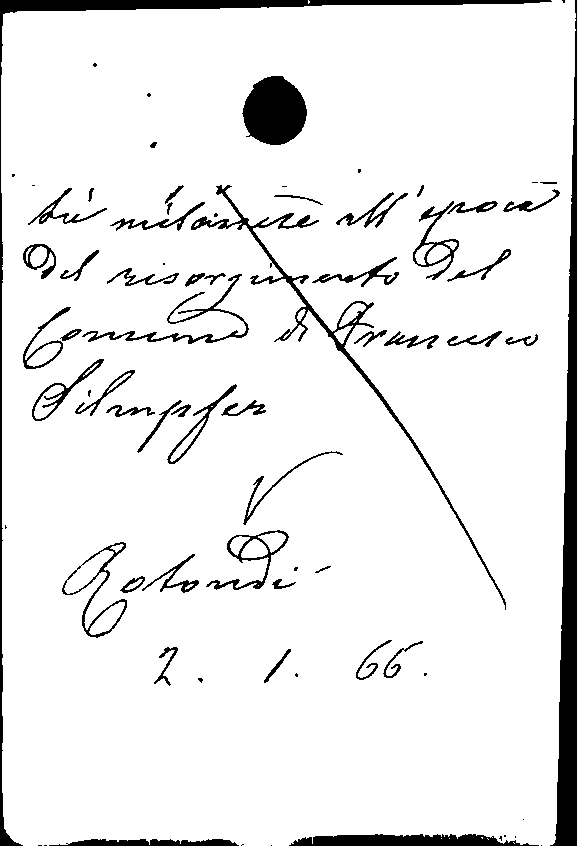 tà milanese all'epoca
del risorgimento del
Comune di Francesco
Silmpfer
Rotondi
2. 1. 66.